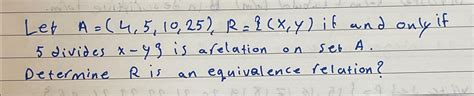 Let A=(4,5,10,25), R={(x,y) if and only if
5 divides x-y} is arelation on set A.
Determine R is an equivalence relation?